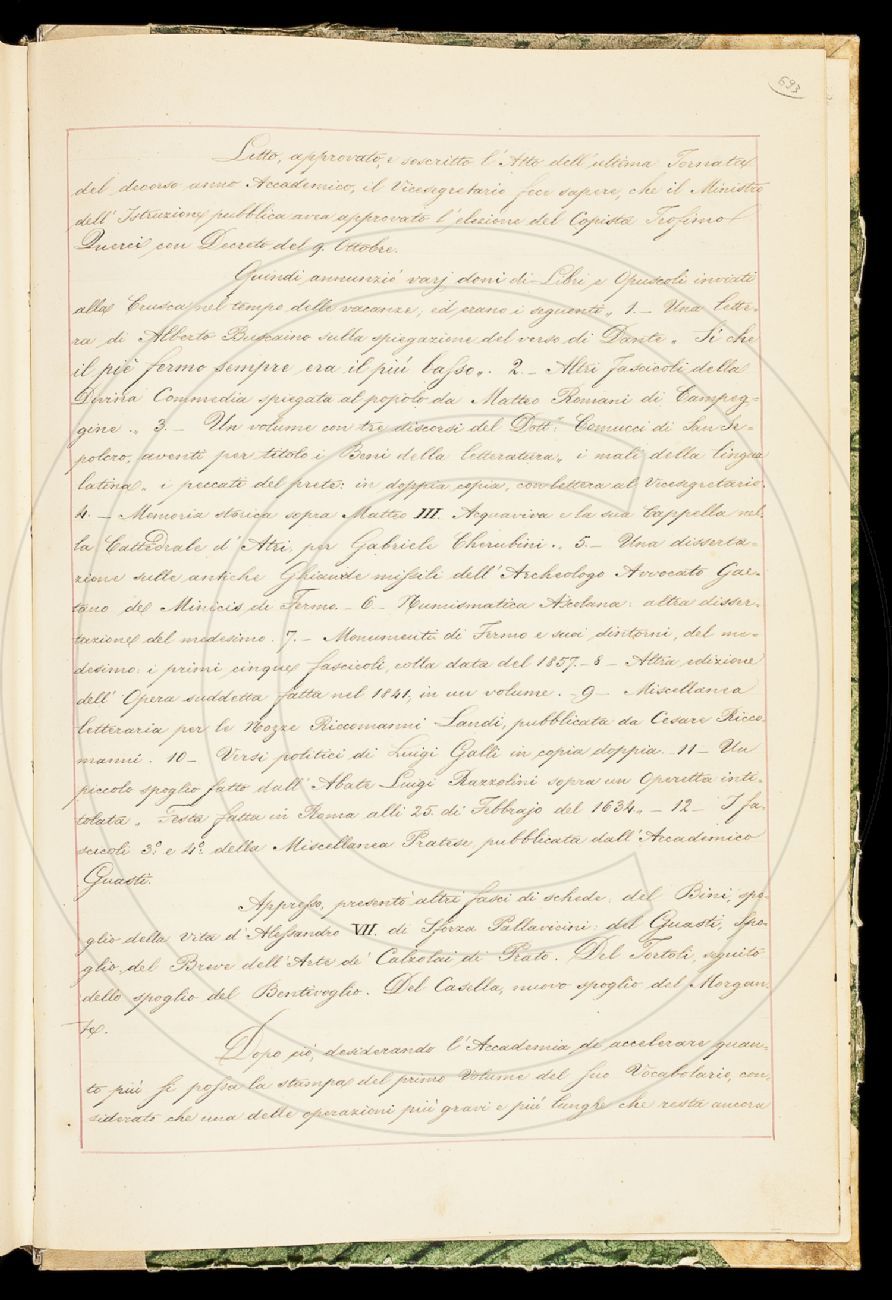 693
Letto, approvato, e soscritto l'Atto dell'ultima Tornata
del decorso anno Accademico, il Vicesegretario fece sapere, che il Ministro
dell'Istruzione pubblica avea approvato l'elezione del Copista Trofimo
Querci con Decreto del 9. Ottobre.
Quindi annunziò varj doni di Libri e Opuscoli inviati
alla Crusca nel tempo delle vacanze, ed erano i seguenti „ 1. — Una lette-
ra di Alberto Buscaino sulla spiegazione del verso di Dante „ Sì che
il piè fermo sempre era il più basso„. 2. — Altri fascicoli della
Divina Commedia spiegata al popolo da Matteo Romani di Campeg-
gine „ 3. — Un volume con tre discorsi del Dott.: Comucci di San Se-
polcro, aventi per titolo i Beni della letteratura„ i mali della lingua
latina„ i peccati del prete: in doppia copia, con lettera al Vicesegretario.
4. — Memoria storica sopra Matteo III. Acquaviva e la sua Cappella nel-
la Cattedrale d'Atri, per Gabriele Cherubini. „ 5. — Una disserta-
zione sulle antiche Ghiande missili dell'Archeologo Avvocato Gae-
tano de Minicis di Fermo. — 6 — Numismatica Ascolana: altra disser-
tazione del medesimo. 7. — Monumenti di Fermo e suoi dintorni, del me-
desimo: i primi cinque fascicoli, colla data del 1857. — 8 — Altra edizione
dell'Opera suddetta fatta nel 1841, in un volume. — 9 — Miscellanea
letteraria per le Nozze Riccomanni Landi, pubblicata da Cesare Ricco-
manni. 10 — Versi politici di Luigi Galli in copia doppia. — 11 — Un
piccolo spoglio fatto dall'Abate Luigi Razzolini sopra un Operetta inti-
tolata „ Festa fatta in Roma alli 25. di Febbrajo del 1634„ — 12 — I fa-
scicoli 3.° e 4.° della Miscellanea Pratese, pubblicata dall'Accademico
Guasti.
Appresso, presentò altri fasci di schede: del Bini, spo-
glio della vita d'Alessandro VII. di Sforza Pallavicini: del Guasti, spo-
glio del Breve dell'Arte de' Calzolai di Prato. Del Tortoli, seguito
dello spoglio del Bentivoglio. Del Casella, nuovo spoglio del Morgan-
te.
Dopo ciò, desiderando l'Accademia di accelerare quan-
to più si possa la stampa del primo Volume del suo Vocabolario, con-
siderato che una delle operazioni più gravi e più lunghe che resta ancora